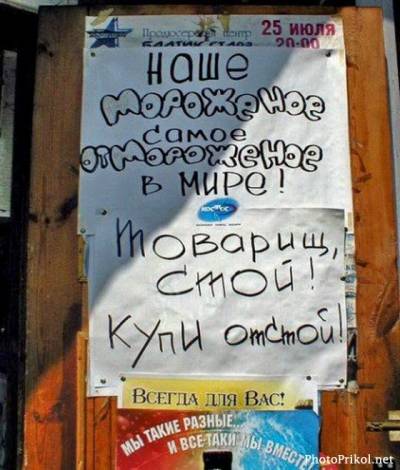 Продюсерский центр
25 ИЮЛЯ
20:00
НАШЕ
МОРОЖЕНОЕ
САМОЕ
ОТМОРОЖЕНОЕ
В МИРЕ!
Товарищ,
Стой!
Купи отстой!
ВСЕГДА ДЛЯ ВАС!
МЫ ТАКИЕ РАЗНЫЕ...
И ВСЕ-ТАКИ МЫ ВМЕСТЕ
PhotoPrikol.net